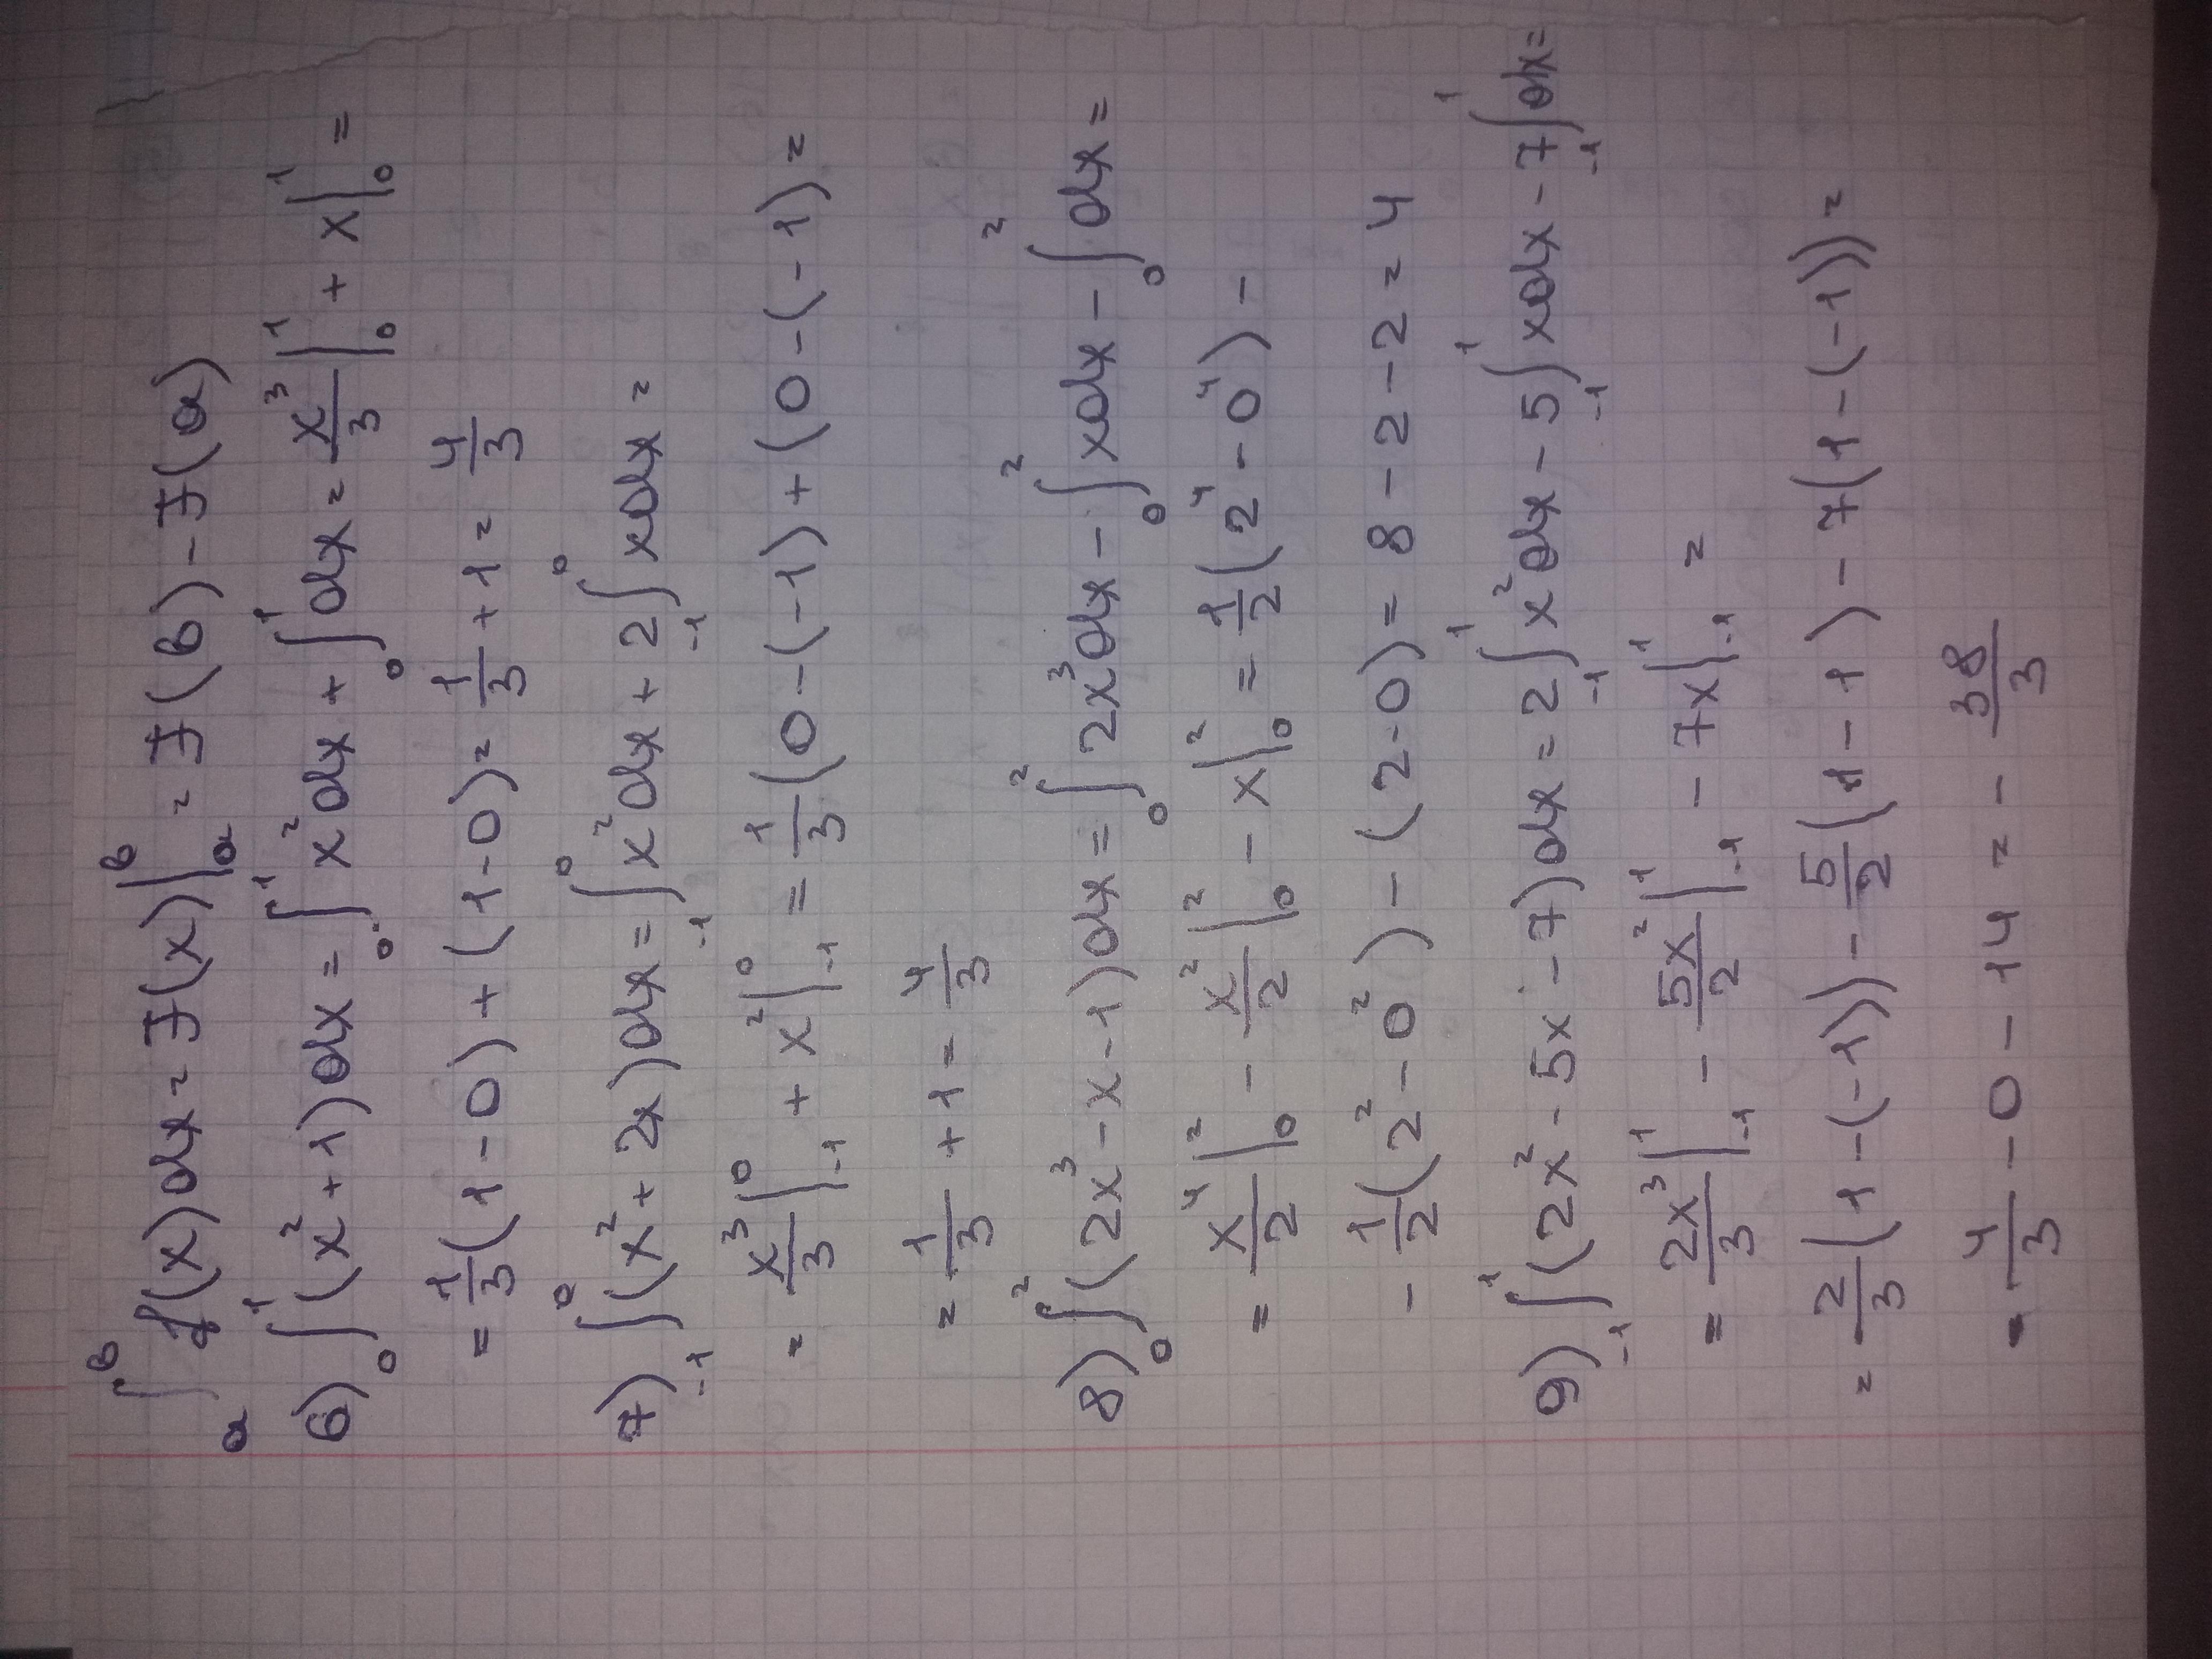 ∫ₐᵇ f(x)dx = F(x)|ₐᵇ = F(b) - F(a)
6) ∫₀¹ (x² + 1)dx = ∫₀¹ x²dx + ∫₀¹ dx = x³/3 |₀¹ + x|₀¹ =
= 1/3(1 - 0) + (1 - 0) = 1/3 + 1 = 4/3
7) ∫₋₁⁰ (x² + 2x)dx = ∫₋₁⁰ x²dx + 2∫₋₁⁰ xdx =
= x³/3 |₋₁⁰ + x²|₋₁⁰ = 1/3(0 - (-1) + (0 - (-1) =
= 1/3 + 1 = 4/3
8) ∫₀² (2x³ - x - 1)dx = ∫₀² 2x³dx - ∫₀² xdx - ∫₀² dx =
= x⁴/2 |₀² - x²/2 |₀² - x|₀² = 1/2(2⁴ - 0⁴) -
- 1/2(2² - 0²) - (2 - 0) = 8 - 2 - 2 = 4
9) ∫₋₁¹ (2x² - 5x - 7)dx = 2∫₋₁¹ x²dx - 5∫₋₁¹ xdx - 7∫₋₁¹ dx =
= 2x³/3 |₋₁¹ - 5x²/2 |₋₁¹ - 7x|₋₁¹ =
= 2/3(1 - (-1)) - 5/2(1 - 1) - 7(1 - (-1)) =
= 4/3 - 0 - 14 = - 38/3